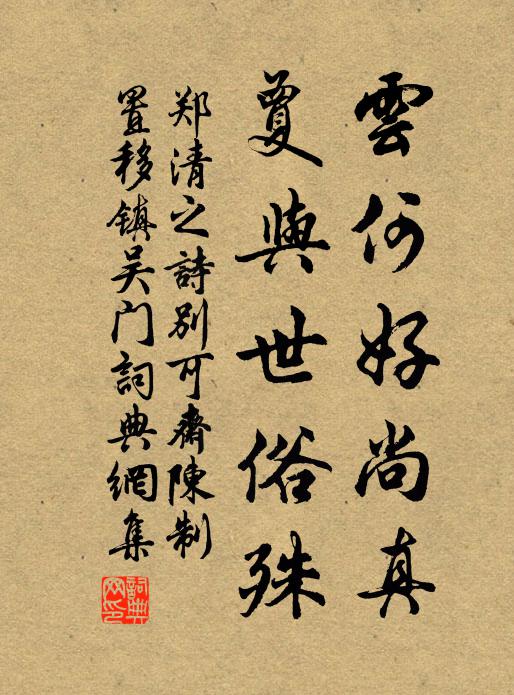 雲何好尚真
夐與世俗殊
郑清之詩別可齋陳制
置移镇吴门詞典網集
詞典网印